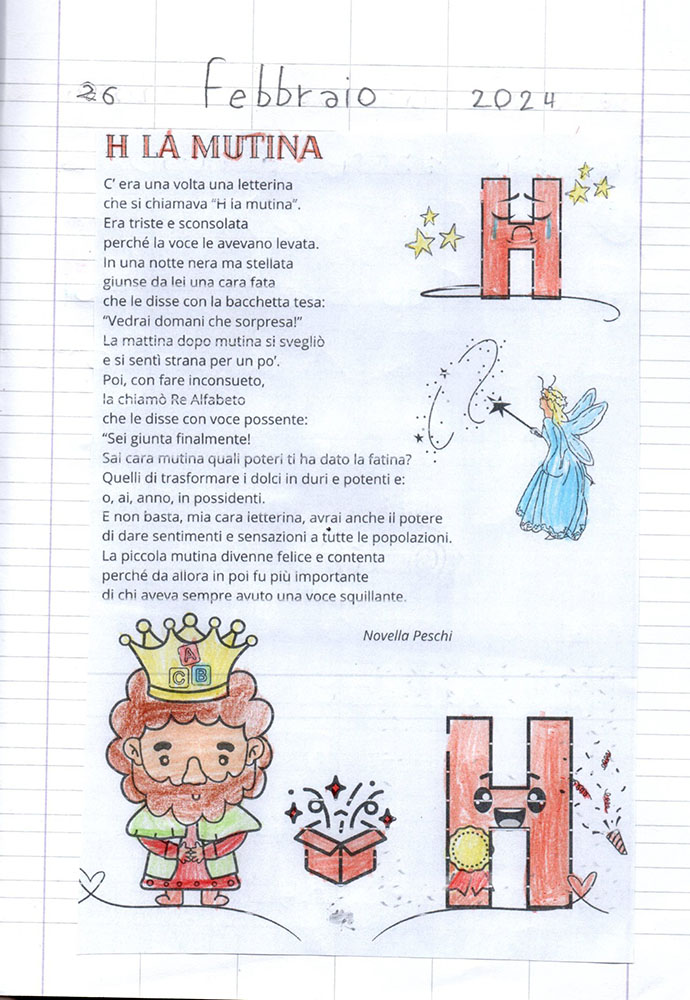 26 Febbraio 2024
H LA MUTINA
C' era una volta una letterina
che si chiamava "H la mutina".
Era triste e sconsolata
perché la voce le avevano levata.
In una notte nera ma stellata
giunse da lei una cara fata
che le disse con la bacchetta tesa:
"Vedrai domani che sorpresa!"
La mattina dopo mutina si svegliò
e si sentì strana per un po'.
Poi, con fare inconsueto,
la chiamò Re Alfabeto
che le disse con voce possente:
"Sei giunta finalmente!
Sai cara mutina quali poteri ti ha dato la fatina?
Quelli di trasformare i dolci in duri e potenti e:
o, ai, anno, in possidenti.
E non basta, mia cara letterina, avrai anche il potere
di dare sentimenti e sensazioni a tutte le popolazioni.
La piccola mutina divenne felice e contenta
perché da allora in poi fu più importante
di chi aveva sempre avuto una voce squillante.
Novella Peschi
A
C B
H
H